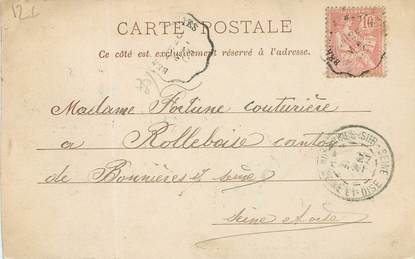 CARTE POSTALE
Ce côté est exclusivement réservé à l'adresse.
Madame Fortune couturière
a Rolleboise canton
de Bonnières s/ Seine
Seine et oise